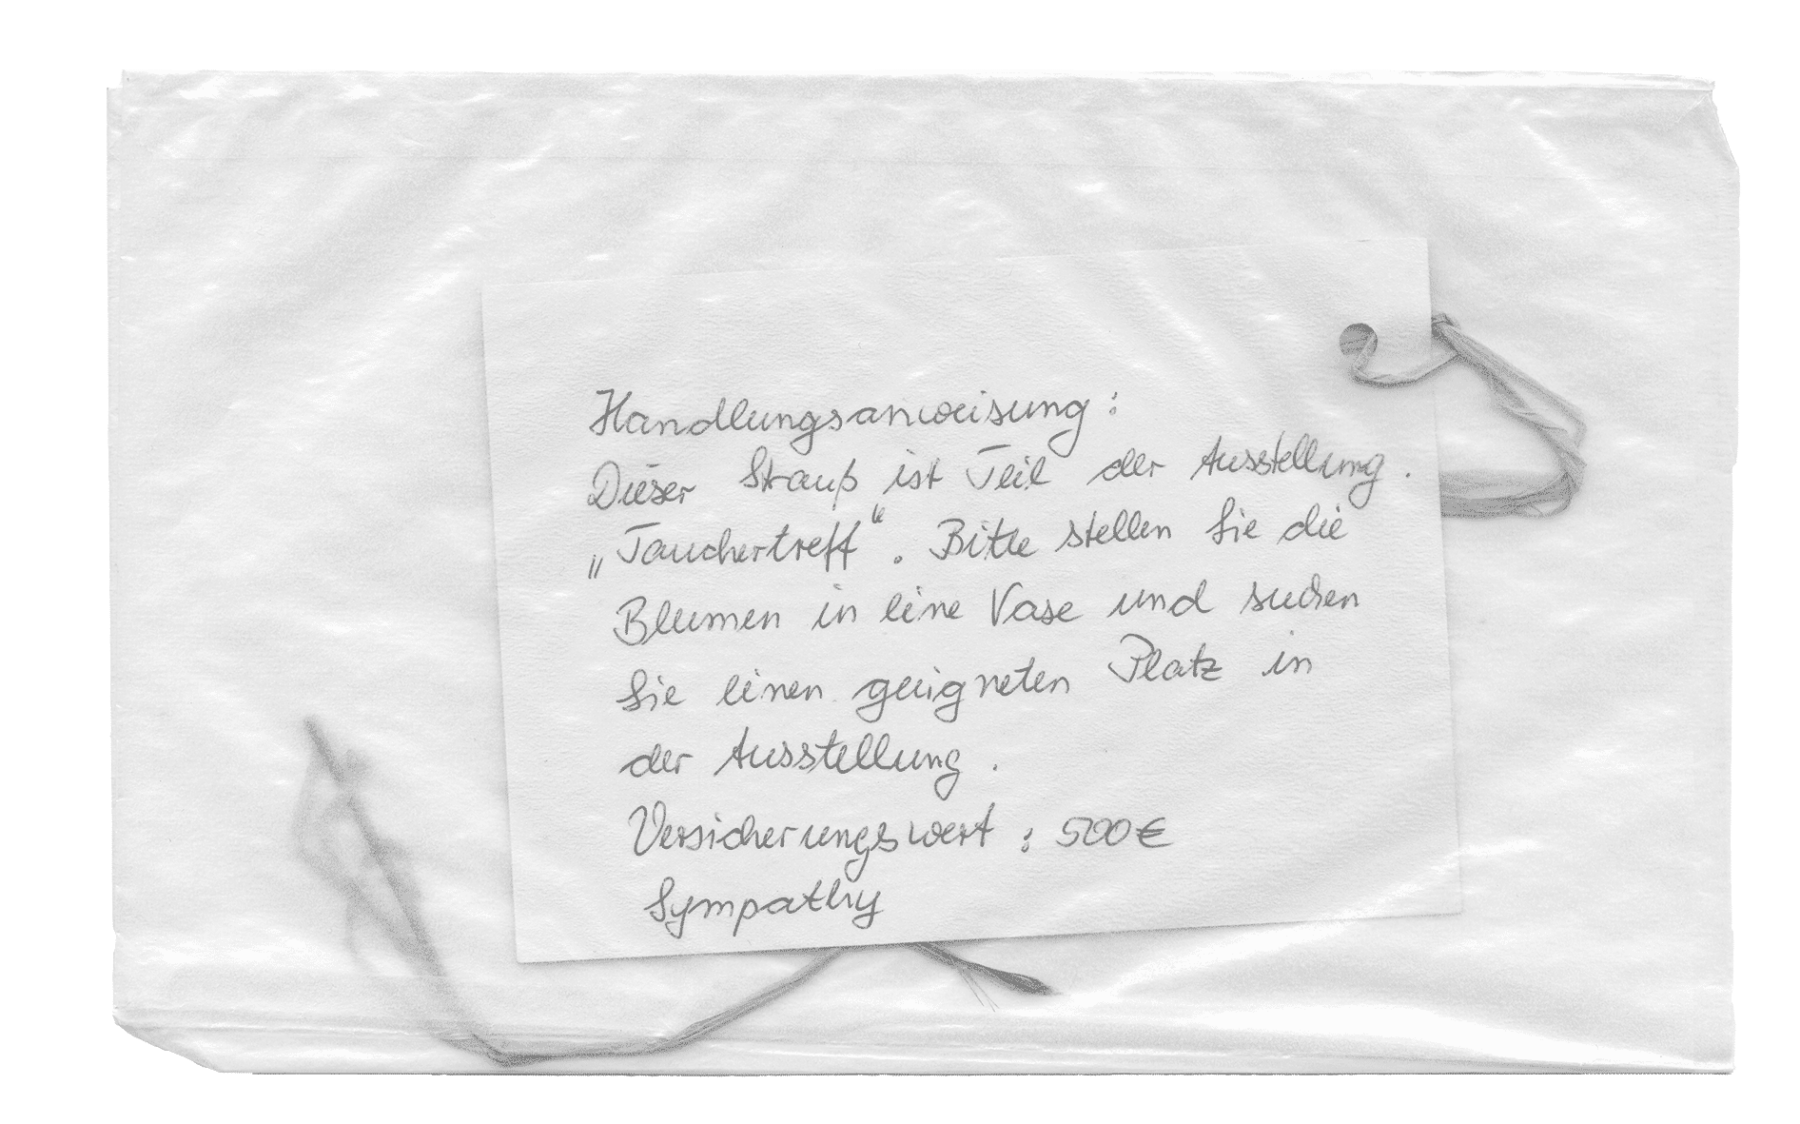 Handlungsanweisung:
Dieser Strauß ist Teil der Ausstellung.
„Tauchertreff“. Bitte stellen Sie die
Blumen in eine Vase und suchen
Sie einen geeigneten Platz in
der Ausstellung.
Versicherungswert: 500€
Sympathy